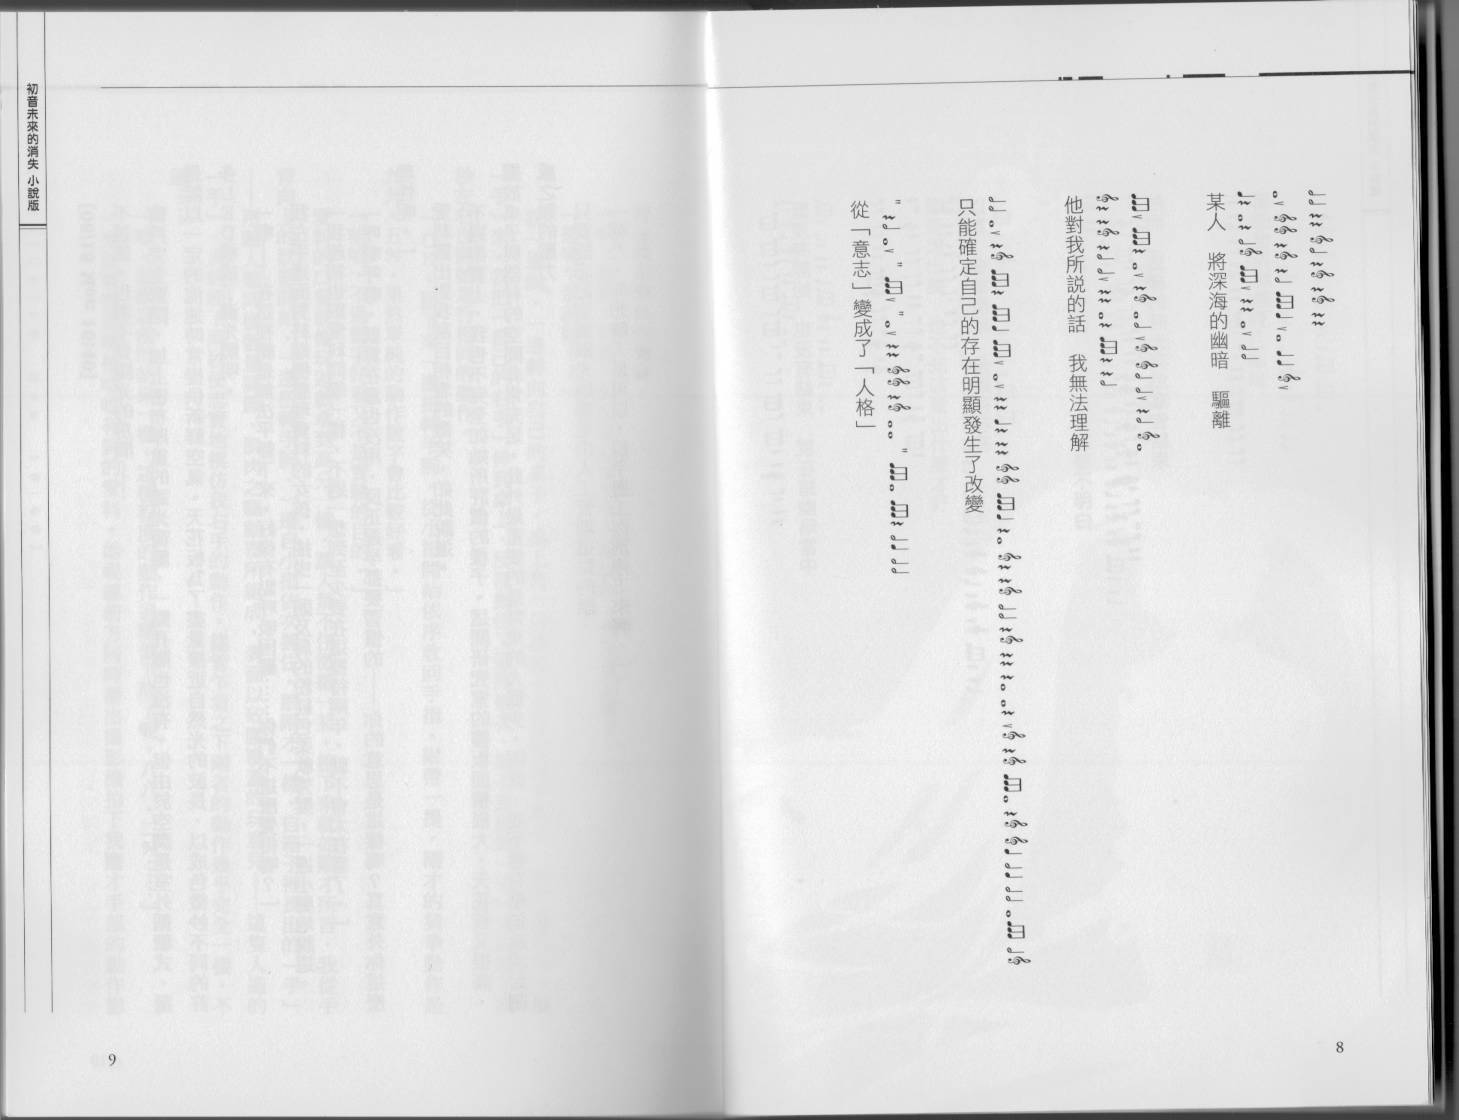 某人　將深海的幽暗　驅離
他對我所說的話　我無法理解
只能確定自己的存在明顯發生了改變
從「意志」變成了「人格」
8
初音未來的消失 小說版
9